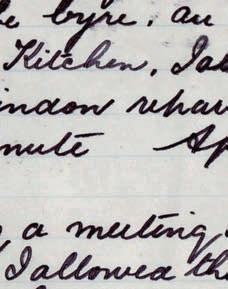 byre, au
Kitchen, Ja
indow repai
nute Ap
a meeting
I allowed th